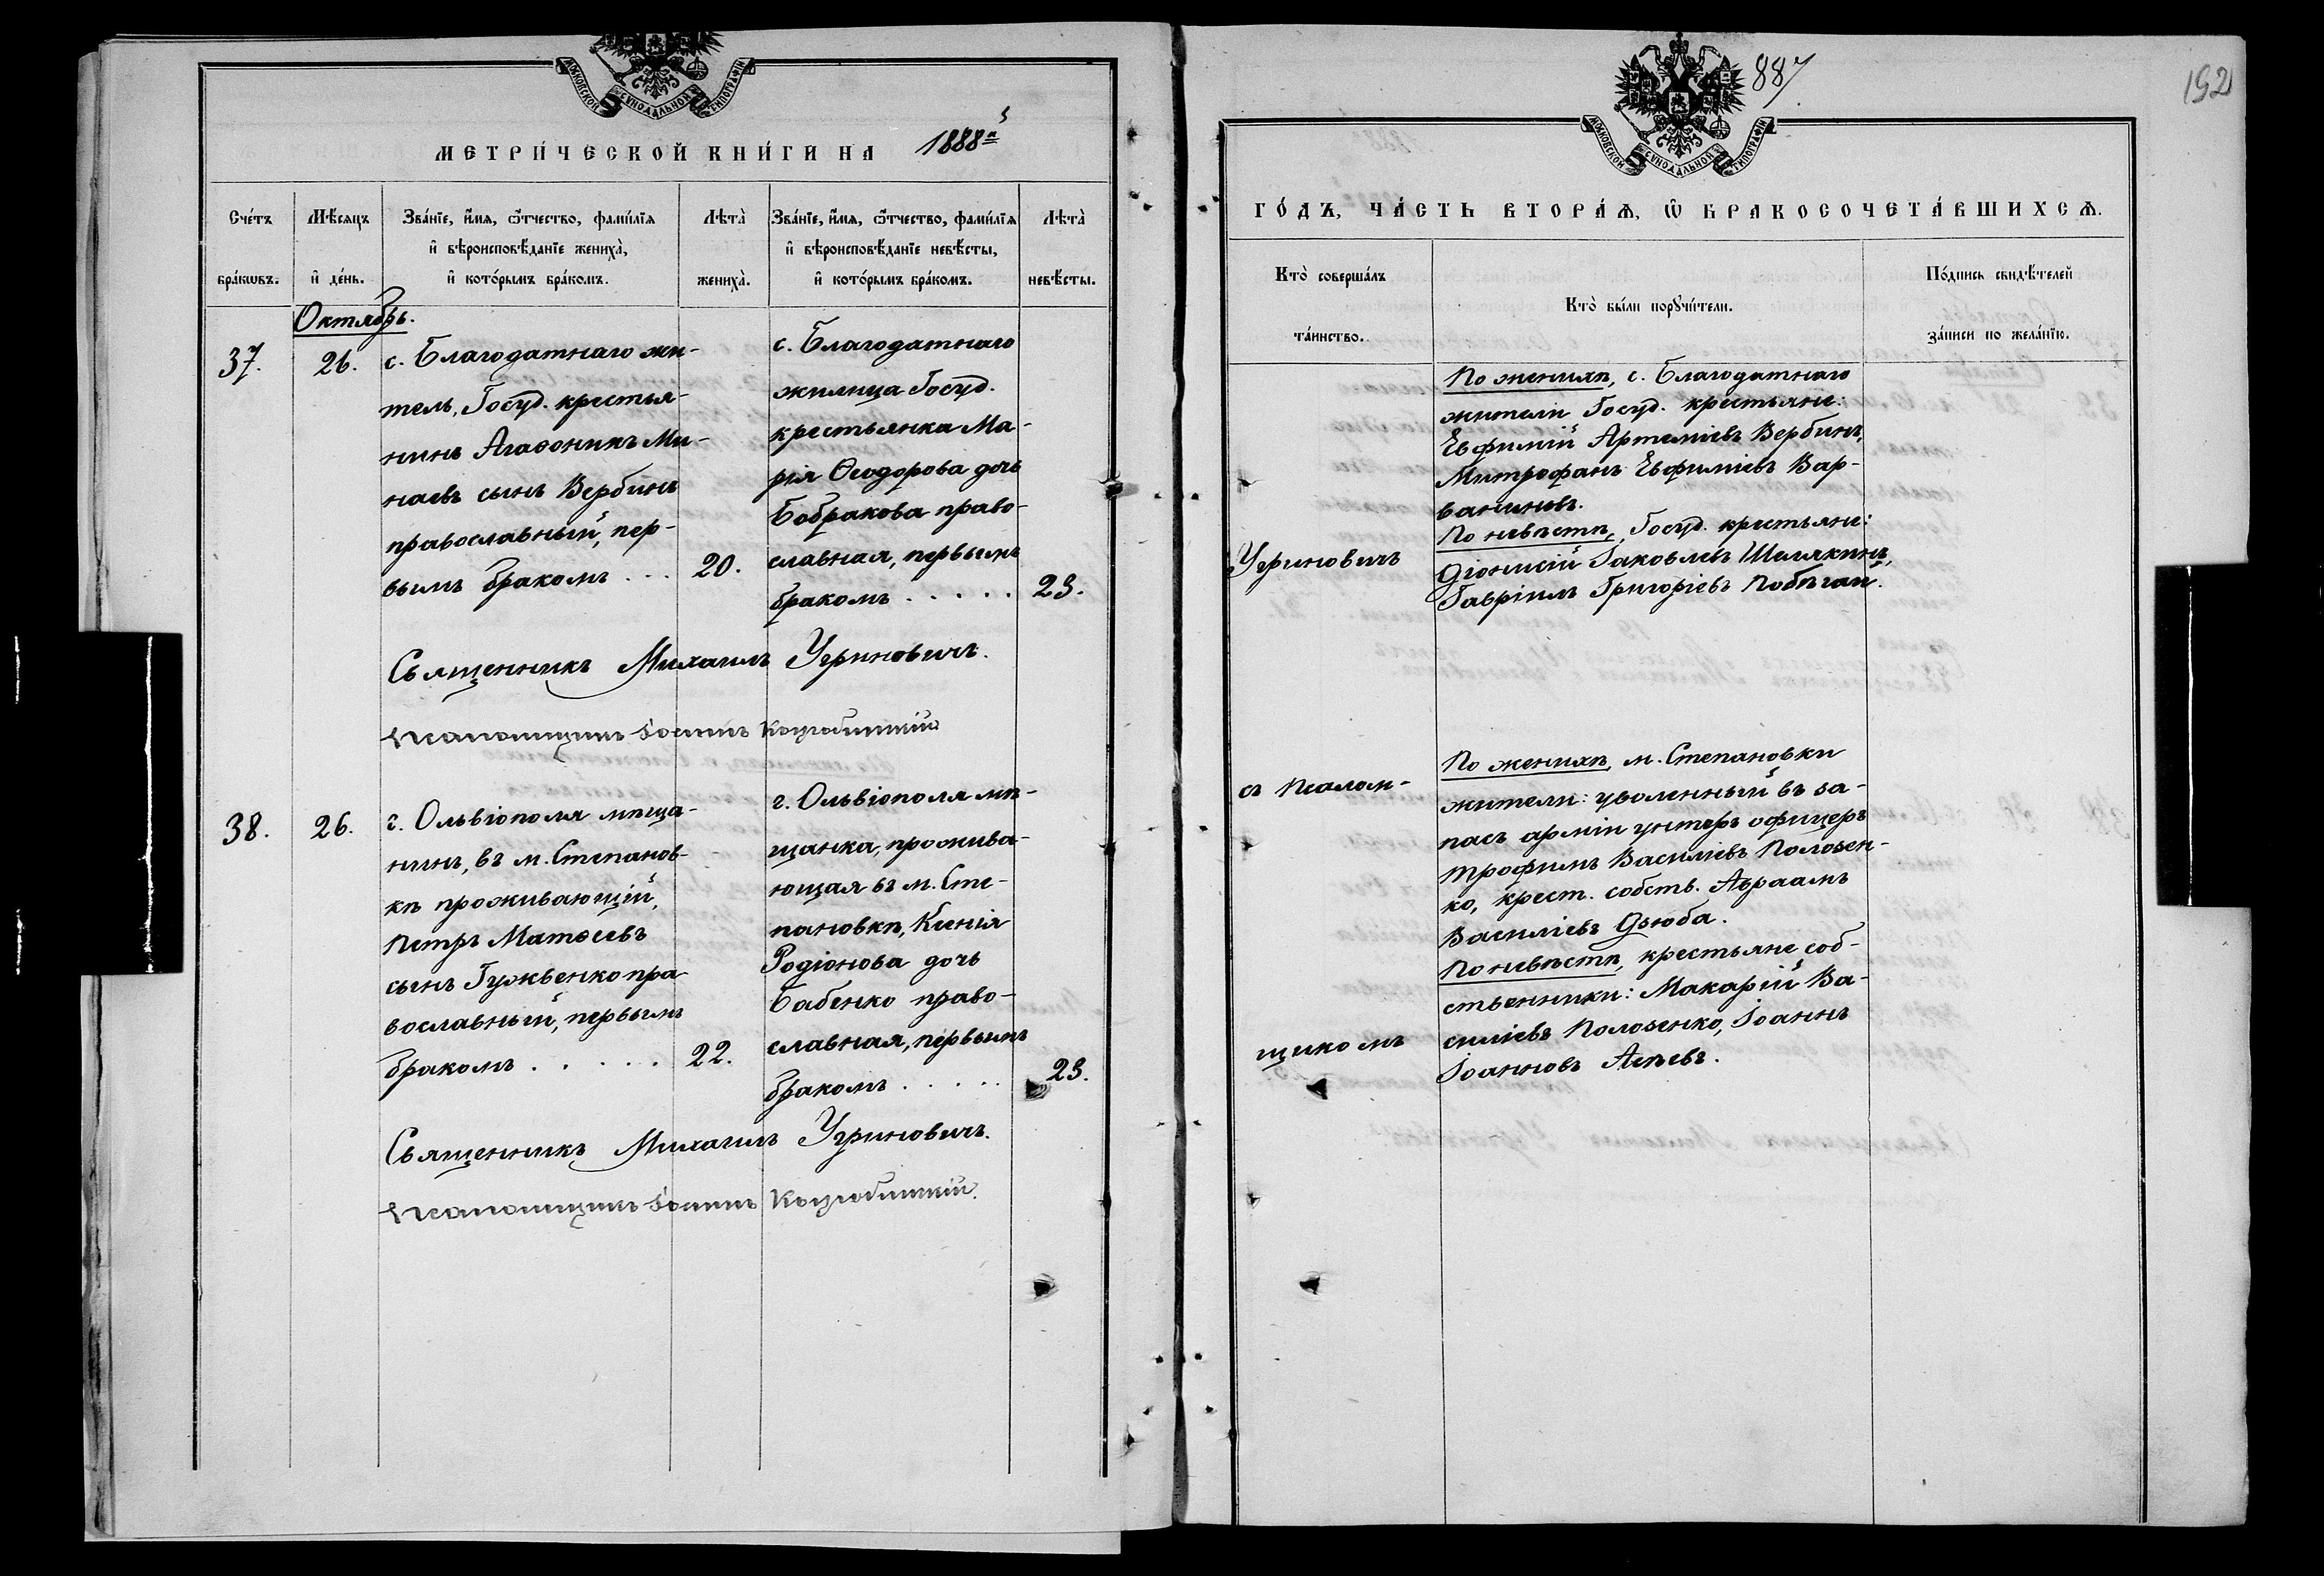 МОСКОВСКОЙ СѴНОДАЛЬНОЙ ТИПОГРАФІИ
МЕТРИ́ЧЕСКОЙ КНИ́ГИ НА 1888й
Сче́тъ
бра́кѡвъ.
Мѣ́сяцъ
и҆ де́нь.
Зва́нїе, и҆́мя, ѻ҆́тчество, фамилі́я
и҆ вѣроисповѣ́данїе жениха̀,
и҆ кото́рымъ бра́комъ.
Лѣта̀
жениха̀.
Зва́нїе, и҆́мя, ѻ҆́тчество, фамилі́я
и҆ вѣроисповѣ́данїе невѣ́сты,
и҆ кото́рымъ бра́комъ.
Лѣта̀
невѣ́сты.
Октябрь.
37.
26.
с. Благодатнаго жи-
тель, Госуд. крестья-
нинъ Агаѳоникъ Ми-
наевъ сынъ Вербинъ
православный, пер-
вымъ бракомъ . . .
20.
с. Благодатнаго
жилица Госуд.
крестьянка Ма-
рія Ѳеодорова дочь
Бобракова право-
славная, первымъ
бракомъ . . . . .
23.
Священникъ Михаилъ Угриновичъ.
Псаломщикъ Іоаннъ
38.
26.
г. Ольвіополя мѣща-
нинъ, въ м. Степанов-
кѣ проживающій,
Петръ Матѳеевъ
сынъ Гужвенко пра-
вославный, первымъ
бракомъ . . . . .
22.
г. Ольвіополя мѣ-
щанка, прожива-
ющая въ м. Сте-
пановкѣ, Ксенія
Родіонова дочь
Бабенко право-
славная, первымъ
бракомъ . . . . .
23.
Священникъ Михаилъ Угриновичъ.
Псаломщикъ Іоаннъ
887
192
МОСКОВСКОЙ СѴНОДАЛЬНОЙ ТИПОГРАФІИ
ГО́ДЪ, ЧА́СТЬ ВТОРА́Ѧ, Ѡ҆ БРАКОСОЧЕТА́ВШИХСѦ.
Кто̀ соверша́лъ
та́инство.
Кто̀ бы́ли порꙋчи́тели.
По́дпись свидѣ́телей
за́писи по жела́нїю.
Угриновичъ
съ Псалом-
щикомъ
По женихѣ, с. Благодатнаго
жители Госуд. крестьяне:
Евфимій Артеміевъ Вербинъ,
Митрофанъ Евфиміевъ Вар-
ваниновъ.
По невѣстѣ, Госуд. крестьяне:
Діонисій Іаковлевъ Шелякинъ,
Гавріилъ Григоріевъ Побѣгай.
По женихѣ, м. Степановки
жители: уволенный въ за-
пасъ арміи унтеръ офицеръ
Трофимъ Василіевъ Полозен-
ко, крест. собств. Авраамъ
Василіевъ Дзюба.
По невѣстѣ, крестьяне соб-
ственники: Макарій Ва-
силіевъ Полозенко, Іоаннъ
Іоанновъ Асѣевъ.